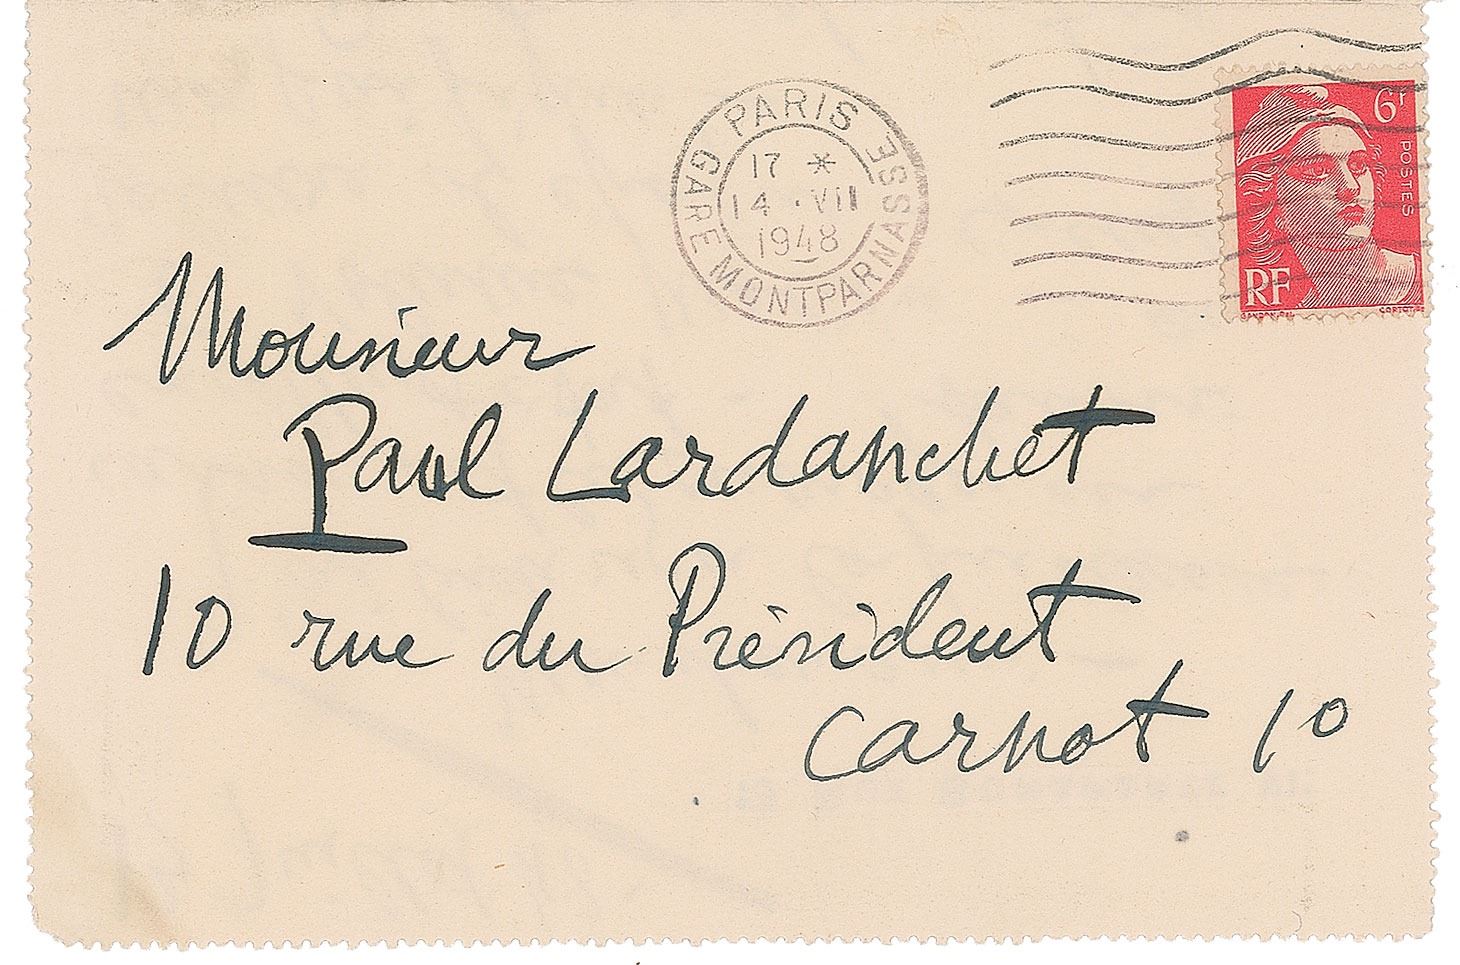 PARIS
GARE MONTPARNASSE
17 *
14 · VII
1948
6F
POSTES
RF
GANDON.DEL
Monsieur
Paul Lardanchet
10 rue du Président
Carnot 10